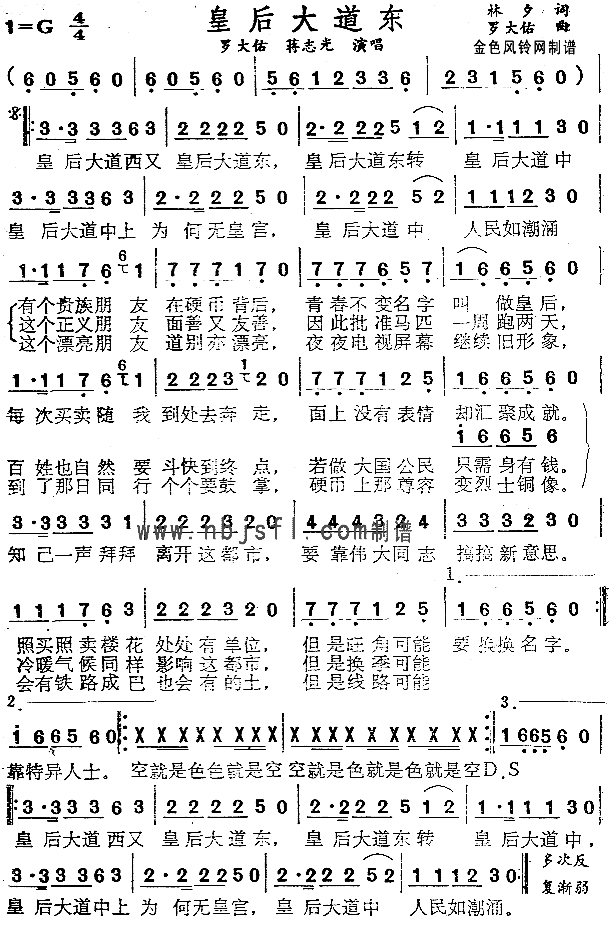 1=G 4/4 皇后大道东 林夕 词
罗大佑 蒋志光 演唱 罗大佑 曲
金色风铃网制谱
( 60560 | 60560 | 5612336 | 231560 )
3·333363 | 2222250 | 2·222512 | 1·11130
皇后大道西又 皇后大道东， 皇后大道东转 皇后大道中
3·333363 | 2·222520 | 2·222512 | 1111230
皇后大道中上 为何无皇宫， 皇后大道中 人民如潮涌
1·11761 | 7771170 | 7777657 | 166560
有个贵族朋友 在硬币背后， 青春不变名字 叫做皇后，
这个正义朋友 面善又友善， 因此批准马匹 一周跑两天，
这个漂亮朋友 道别亦漂亮， 夜夜电视屏幕 继续旧形象，
1·11761 | 2222310 | 7777125 | 166560
每次买卖随我 到处去奔走， 面上没有表情 却汇聚成就。
16656
百姓也自然要 斗快到终点， 若做大国公民 只需身有钱。
到了那日同行 个个要鼓掌， 硬币上那尊容 变烈士铜像。
3·333331 | 2222320 | 4·444324 | 3333230
www.nbjsfl.com制谱
知己一声拜拜 离开这都市， 要靠伟大同志 搞搞新意思。
1.
1111763 | 2222320 | 7777125 | 166560
照买照卖楼花 处处有单位， 但是旺角可能 要换换名字。
冷暖气候同样 影响这都市， 但是换季可能
会有铁路成巴 也会有的士， 但是线路可能
2. 3.
166560 | XXXX XXX | XXXX XXX | 166560
靠特异人士。 空就是色色就是空空就是色就是色就是空D.S
3·333363 | 2222250 | 2·222512 | 1·11130
皇后大道西又 皇后大道东， 皇后大道东转 皇后大道中，
3·333363 | 2·222250 | 2·222252 | 1111230 多次反
复渐弱
皇后大道中上 为何无皇宫， 皇后大道中 人民如潮涌。